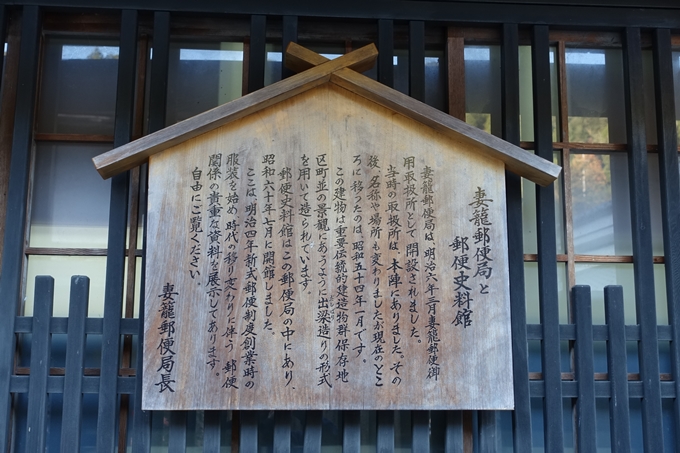 妻籠郵便局と
郵便史料館
妻籠郵便局は、明治六年三月妻籠郵便御
用取扱所として、開設されました。
当時の取扱所は、本陣でありました。その
後、名称や場所も変わりましたが現在のとこ
ろに移ったのは、昭和五十四年一月です。
この建物は重要伝統的建造物群保存地
区町並の景観にあうように出梁造りの形式
を用いて造られています
郵便史料館はこの郵便局の中にあり、
昭和六十年七月に開館しました。
ここは、明治四年新式郵便制度創業時の
服装を始め、時代の移り変わりに伴う、郵便
関係の貴重な資料を展示してあります。
自由にご覧ください。
妻籠郵便局長